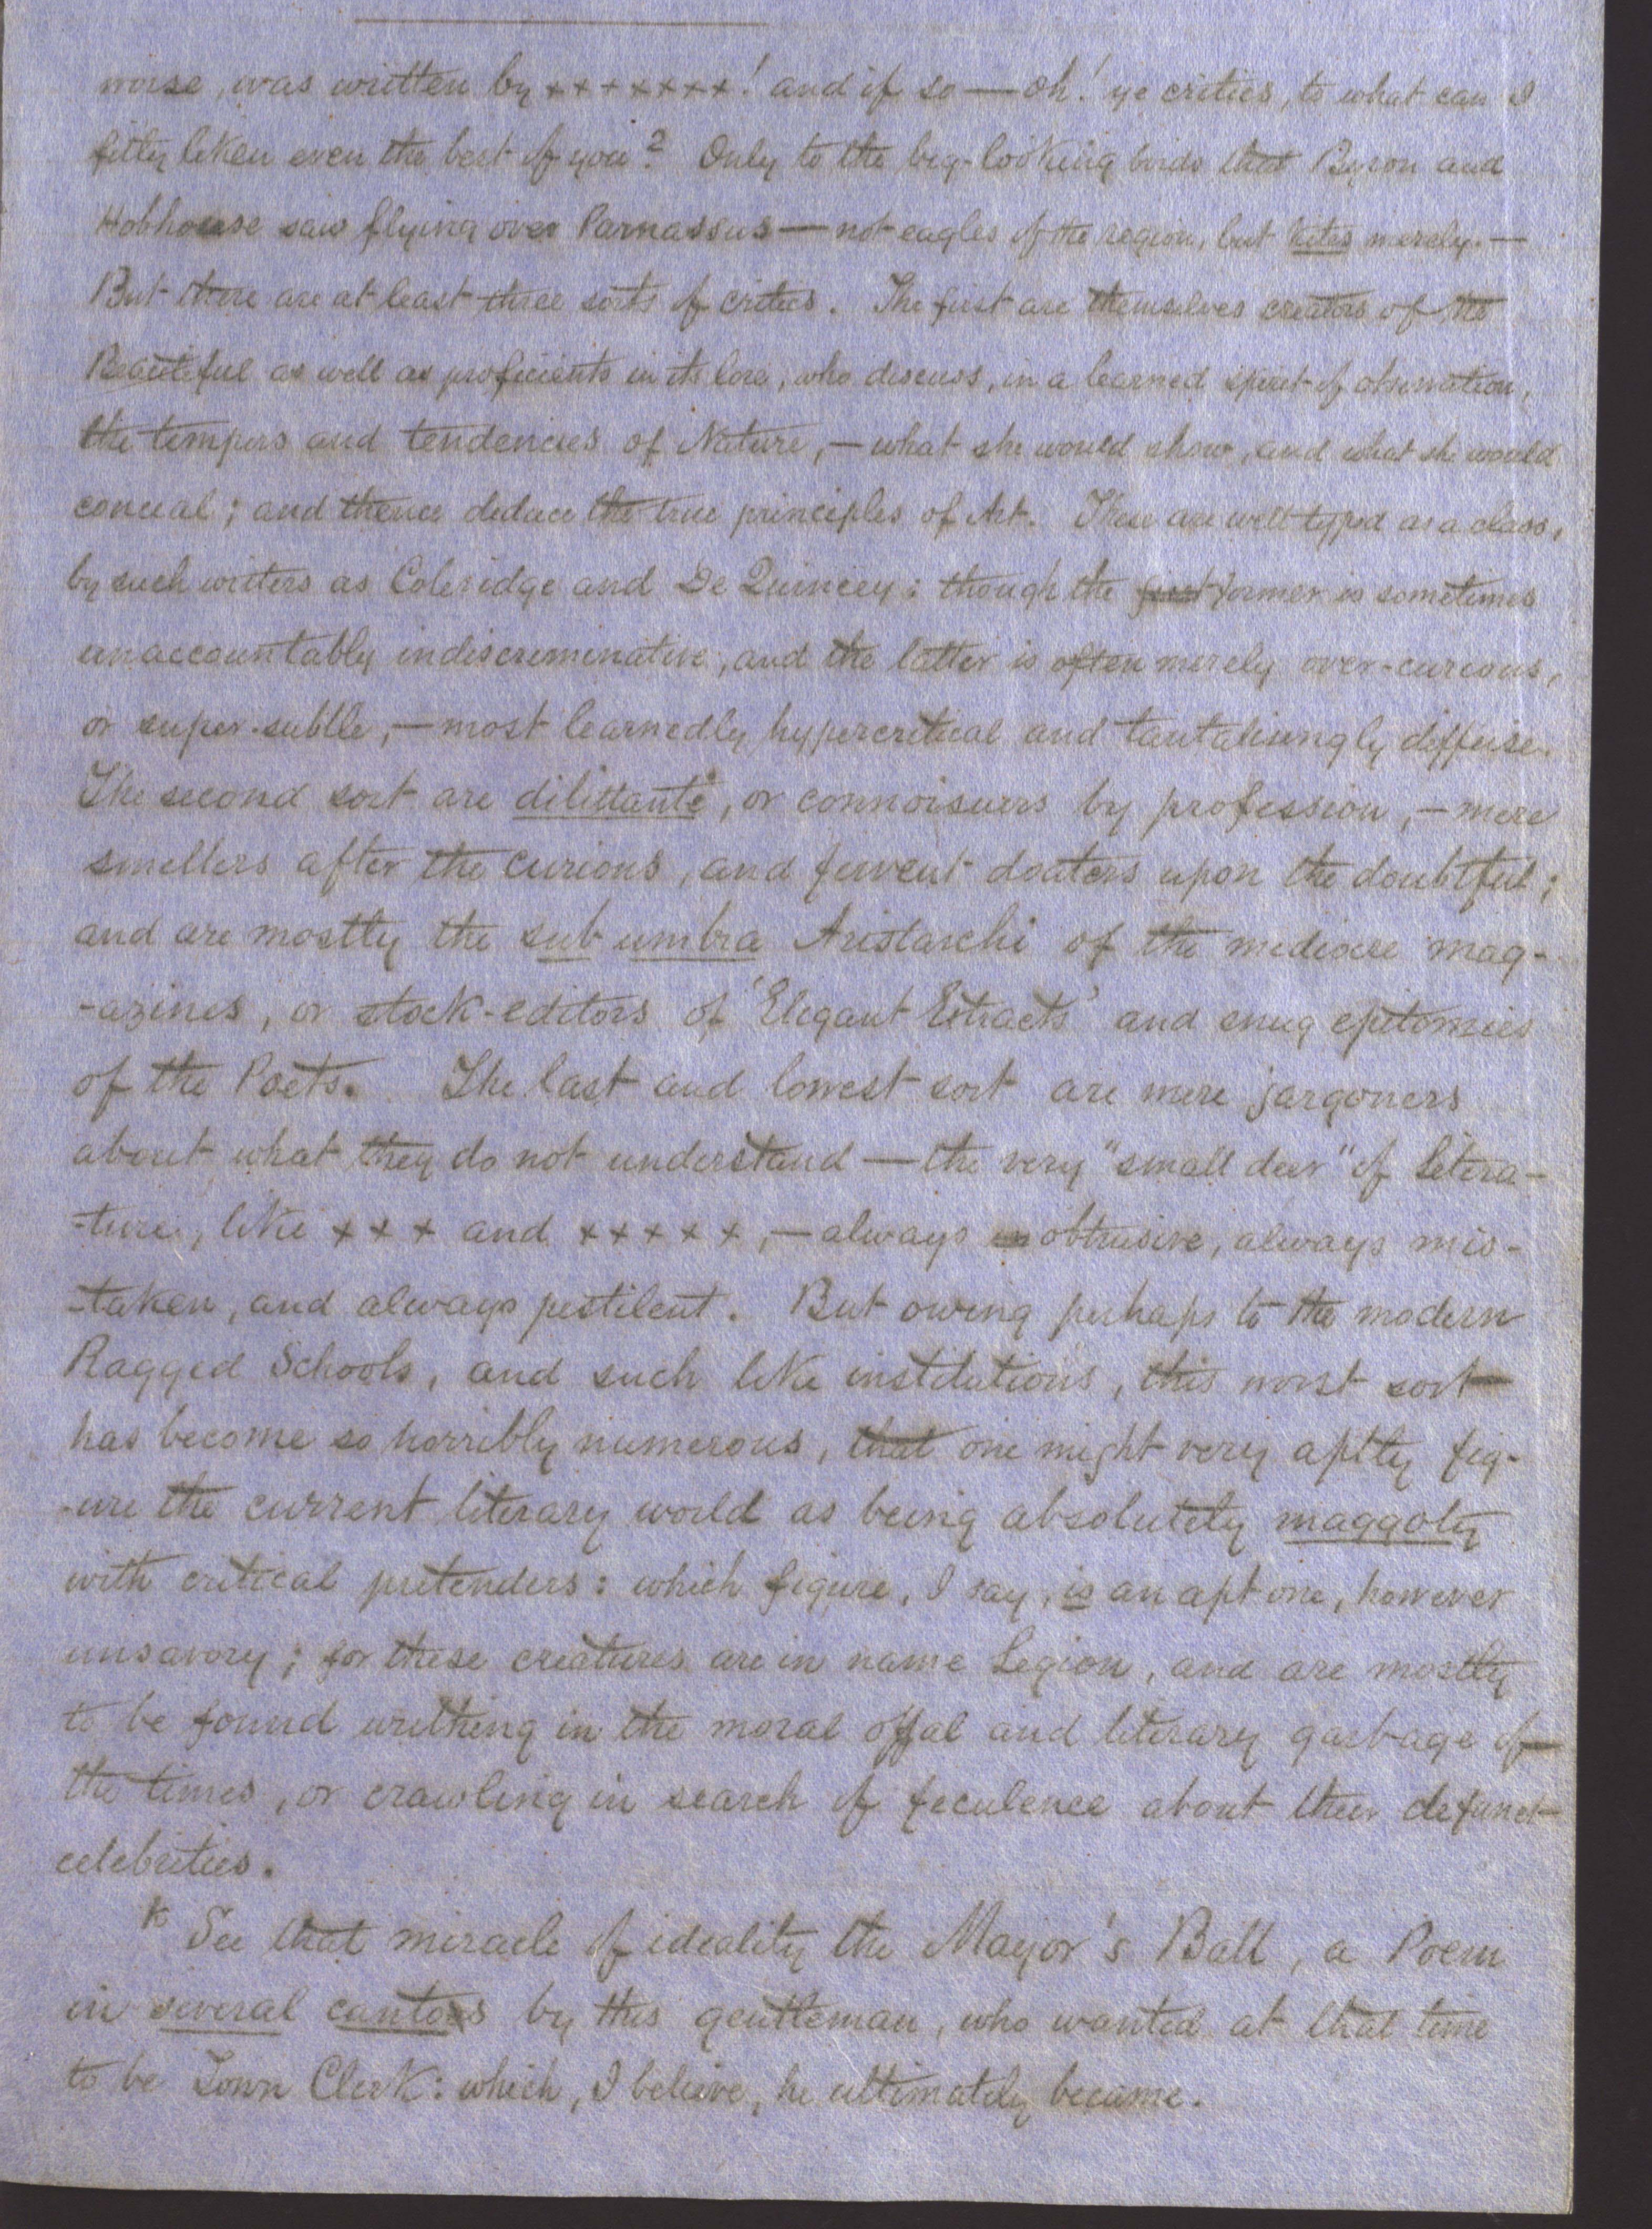 worse, was written by × × + × × × ×! and if so — oh! ye critics, to what can I
fitly liken even the best of you? Only to the big-looking birds that Byron and
Hobhouse saw flying over Parnassus — not eagles of the region, but kites merely. —
But there are at least three sorts of critics. The first are themselves creators of the
Beautiful as well as proficients in its lore, who discuss, in a learned spirit of observation,
the tempers and tendencies of Nature, — what she would show, and what she would
conceal; and thence deduce the true principles of Art. These are well typed as a class,
by such writers as Coleridge and De Quincey: though the first former is sometimes
unaccountably indiscriminative, and the latter is often merely over-curious,
or super-subtle, — most learnedly hypercritical and tantalisingly diffuse.
The second sort are dilittante, or connoisuers by profession, — mere
smellers after the curious, and fervent doaters upon the doubtful;
and are mostly the sub umbra Aristarchi of the mediocre mag-
-azines, or stock-editors of 'Elegant Extracts' and snug epitomies
of the Poets. The last and lowest sort are mere jargoners
about what they do not understand — the very "small deer" of litera-
-ture, like × × × and × × × × ×, — always obtrusive, always mis-
-taken, and always pestilent. But owing perhaps to the modern
Ragged Schools, and such like institutions, this worst sort
has become so horribly numerous, that one might very aptly fig-
-ure the current literary world as being absolutely maggoty
with critical pretenders: which figure, I say, is an apt one, however
unsavory; for these creatures are in name Legion, and are mostly
to be found writhing in the moral offal and literary garbage of
the times, or crawling in search of feculence about their defunct
celebrities.
* See that miracle of ideality the Mayor's Ball, a Poem
in several cantos by this gentleman, who wanted at that time
to be Town Clerk: which, I believe, he ultimately became.